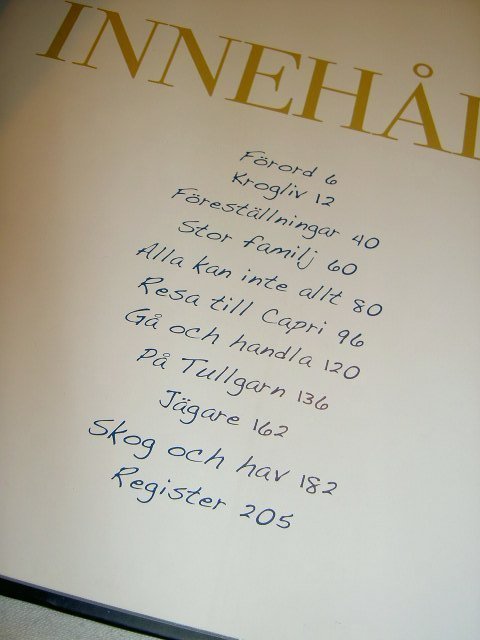 INNEHÅL
Förord 6
Krogliv 12
Föreställningar 40
Stor familj 60
Alla kan inte allt 80
Resa till Capri 96
Gå och handla 120
På Tullgarn 136
Jägare 162
Skog och hav 182
Register 205